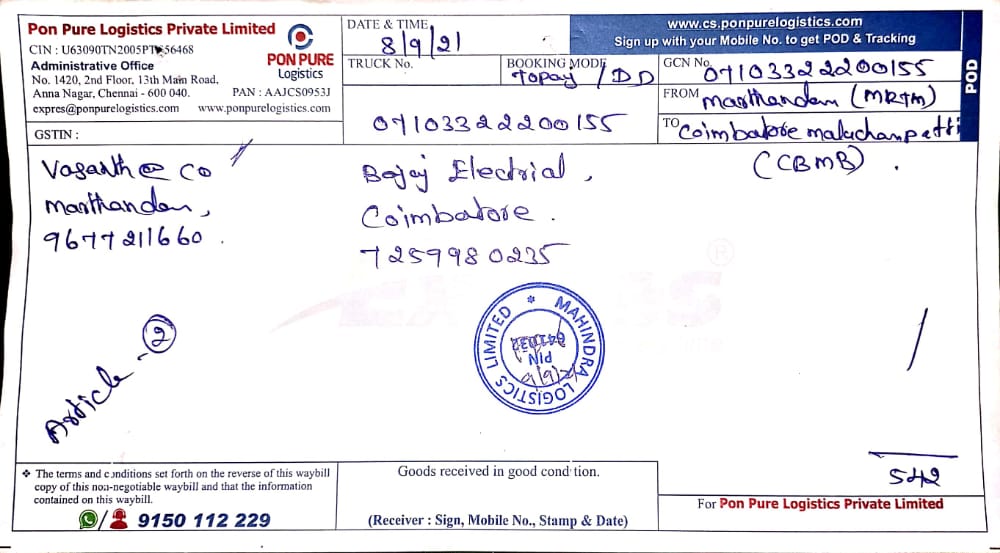 Pon Pure Logistics Private Limited
CIN : U63090TN2005PT 56468
Administrative Office
No. 1420, 2nd Floor, 13th Main Road,
Anna Nagar, Chennai - 600 040. PAN : AAJCS0953J
expres@ponpurelogistics.com www.ponpurelogistics.com
PON PURE
Logistics
GSTIN :
DATE & TIME
8/9/21
TRUCK No.
BOOKING MODE
Topay / DD
07103322200155
www.cs.ponpurelogistics.com
Sign up with your Mobile No. to get POD & Tracking
GCN No. 07103322200155
FROM Marthandam (MRTM)
TO Coimbatore Maluchampatti
(CBMB) .
POD
Vasanth & Co
Marthandam,
9677211660 .
Bajaj Electrial ,
Coimbatore .
7259980235
MAHINDRA LOGISTICS LIMITED
PIN
Article - 2
542
❖ The terms and conditions set forth on the reverse of this waybill
copy of this non-negotiable waybill and that the information
contained on this waybill.
/ 9150 112 229
Goods received in good condition.
(Receiver : Sign, Mobile No., Stamp & Date)
For Pon Pure Logistics Private Limited